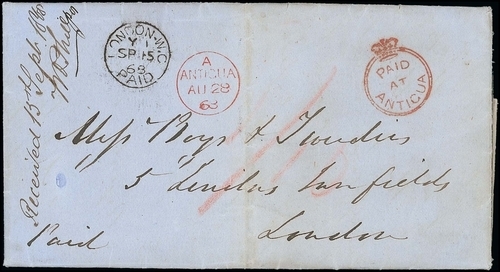 Received 15th Sept. 1868
LONDON·W.C
Y 1
SP 15
68
PAID
A
ANTIGUA
AU 28
68
PAID
AT
ANTIGUA
Messrs Boys & Tweedies
5 Lincolns Inn fields
London
Paid